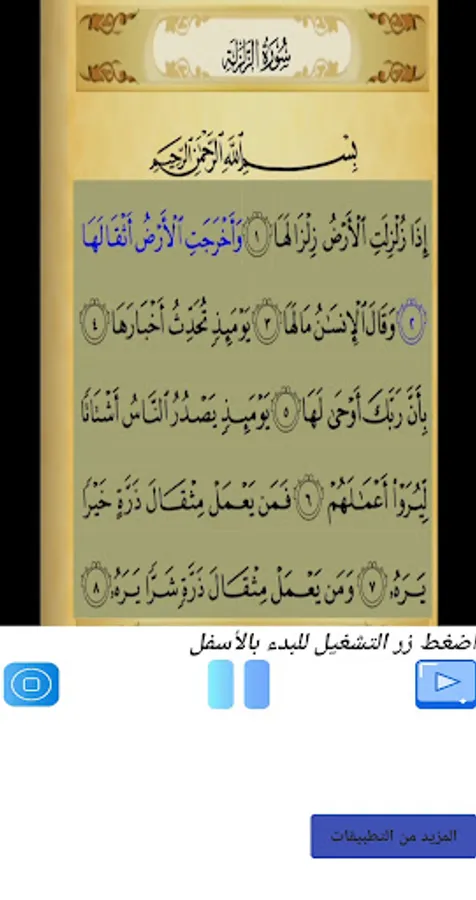 سُورَةُ الزَّلْزَلَةِ
بِسْمِ اللَّهِ الرَّحْمَٰنِ الرَّحِيمِ
إِذَا زُلْزِلَتِ الْأَرْضُ زِلْزَالَهَا ١ وَأَخْرَجَتِ الْأَرْضُ أَثْقَالَهَا
٢ وَقَالَ الْإِنسَٰنُ مَا لَهَا ٣ يَوْمَئِذٍ تُحَدِّثُ أَخْبَارَهَا ٤
بِأَنَّ رَبَّكَ أَوْحَىٰ لَهَا ٥ يَوْمَئِذٍ يَصْدُرُ النَّاسُ أَشْتَاتًا
لِّيُرَوْا أَعْمَٰلَهُمْ ٦ فَمَن يَعْمَلْ مِثْقَالَ ذَرَّةٍ خَيْرًا
يَرَهُ ٧ وَمَن يَعْمَلْ مِثْقَالَ ذَرَّةٍ شَرًّا يَرَهُ ٨
اضغط زر التشغيل للبدء بالأسفل
المزيد من التطبيقات